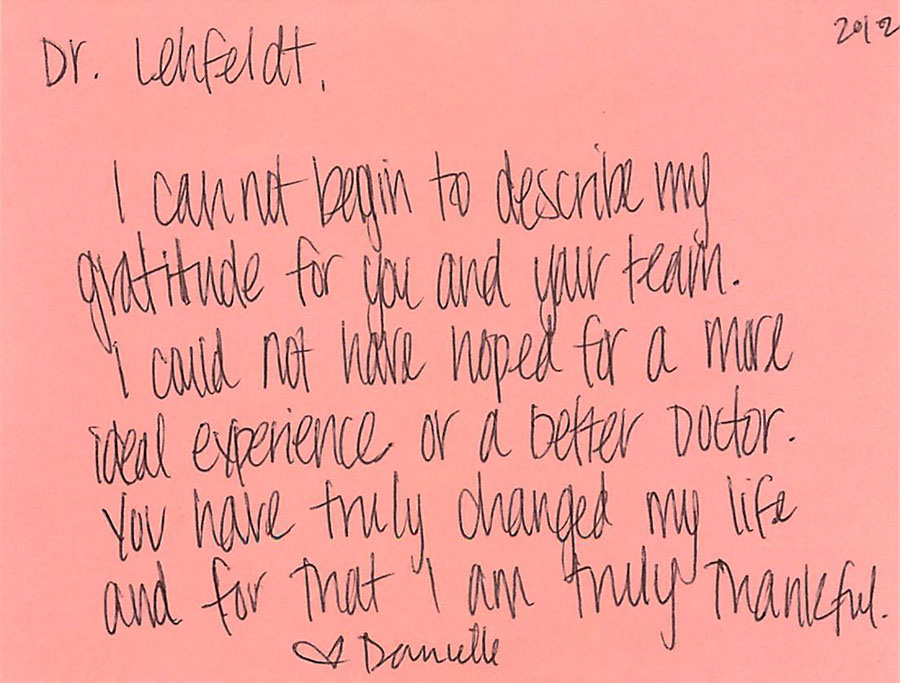 2012
Dr. Lehfeldt,
I can not begin to describe my
gratitude for you and your team.
I could not have hoped for a more
ideal experience or a better Doctor.
You have truly changed my life
and for that I am truly thankful.
♡ Danielle